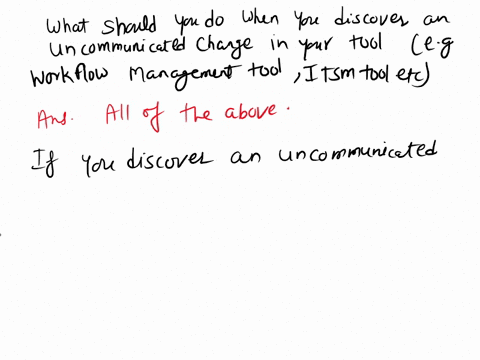 What should you do when you discover an
uncommunicated change in your tool (e.g
workflow management tool, ITsm tool etc)
Ans. All of the above.
If you discover an uncommunicated